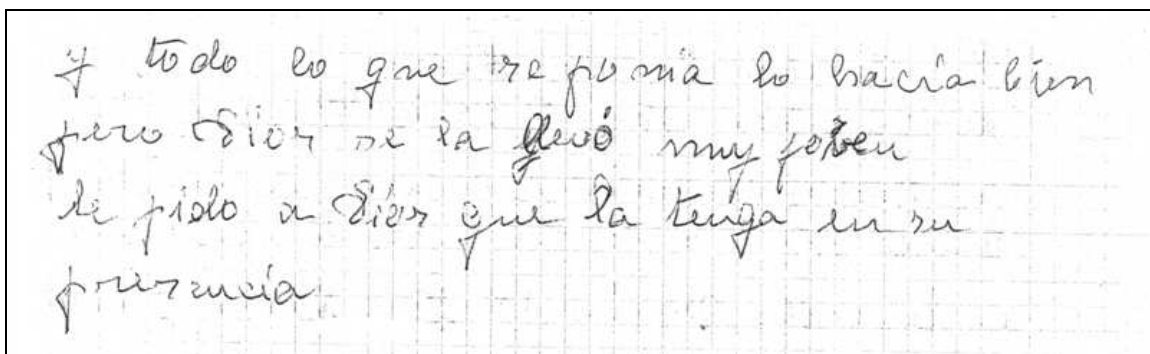 y todo lo que se ponia lo hacía bien
pero Dios se la llevó muy joben
le pido a Dios que la tenga en su
presencia